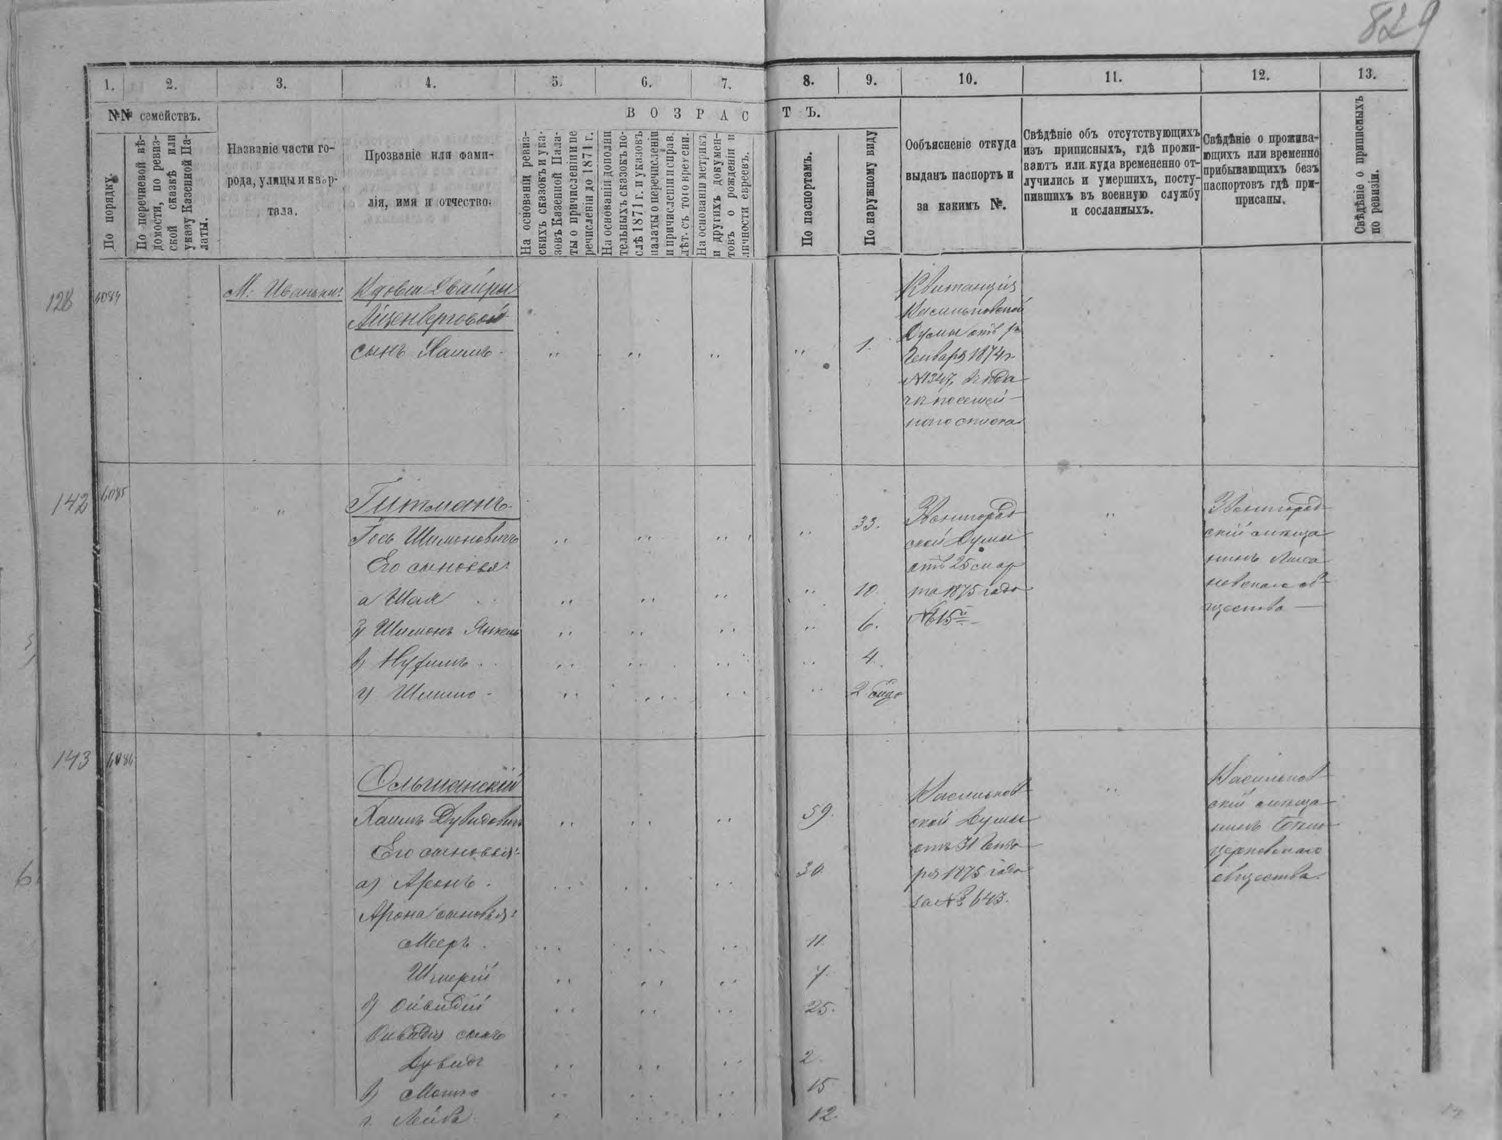 829
1. 2. 3. 4. 5. 6. 7. 8. 9. 10. 11. 12. 13.
№№ семействъ.
По порядку.
По перечневой вѣ-
домости, по ревиз-
ской сказкѣ или
указу Казенной Па-
латы.
Названіе части го-
рода, улицы и квар-
тала.
Прозваніе или фами-
лія, имя и отчество.
ВОЗРАСТЪ.
На основаніи ревиз-
скихъ сказокъ и ука-
зовъ Казенной Пала-
ты о причисленіи и пе
речисленіи до 1871 г.
На основаніи дополни
тельныхъ сказокъ по-
слѣ 1871 г. и указовъ
палаты о перечисленіи
и причисленіи и справ.
лѣт. съ того времени.
На основаніи метрикъ
и другихъ докумен-
товъ о рожденіи и
личности евреевъ.
По паспортамъ.
По наружному виду
Ообъясненіе откуда
выданъ паспортъ и
за какимъ №.
Свѣдѣніе объ отсутствующихъ
изъ приписныхъ, гдѣ прожи-
ваютъ или куда временно от-
лучились и умершихъ, посту-
пившихъ въ военную службу
и сосланныхъ.
Свѣдѣніе о прожива-
ющихъ или временно
прибывающихъ безъ
паспортовъ гдѣ при-
писаны.
Свѣдѣніе о приписныхъ
по ревизіи.
128 6084 М. Иваньки Вдова Хвайры
сынъ Хаимъ 1.
Квитанція
Васильковской
Думы отъ
Января 1874 г.
№1347
посемей-
наго списка
142 6085 Гитманъ
Гось Шимоновичъ 33.
Его сыновья:
а Шая 10.
б) Шимонъ Янкель 6.
в) Нухимъ 4.
г) Шлиомо 2
Звенигород-
ской Думы
отъ 25 мар
та 1875 года
№ 615
Звенигород-
скій мѣща
нинъ Лыся
невскаго об-
щества
143 6086
Ольшанскій
Хаимъ Дувидовичъ 59.
Его сыновья:
а) Аронъ. 30
Арона сыновья:
Мееръ. 11.
Шмерій 7
б) Овидій 25.
Овидія сынъ
Дувидъ 2
в) Мошко 15
г. Лейба 12.
Васильков-
ской Думы
отъ 31 Янва
ря 1875 года
за № 643.
Васильков-
скій мѣща
нинъ Бѣло
церковскаго
общества